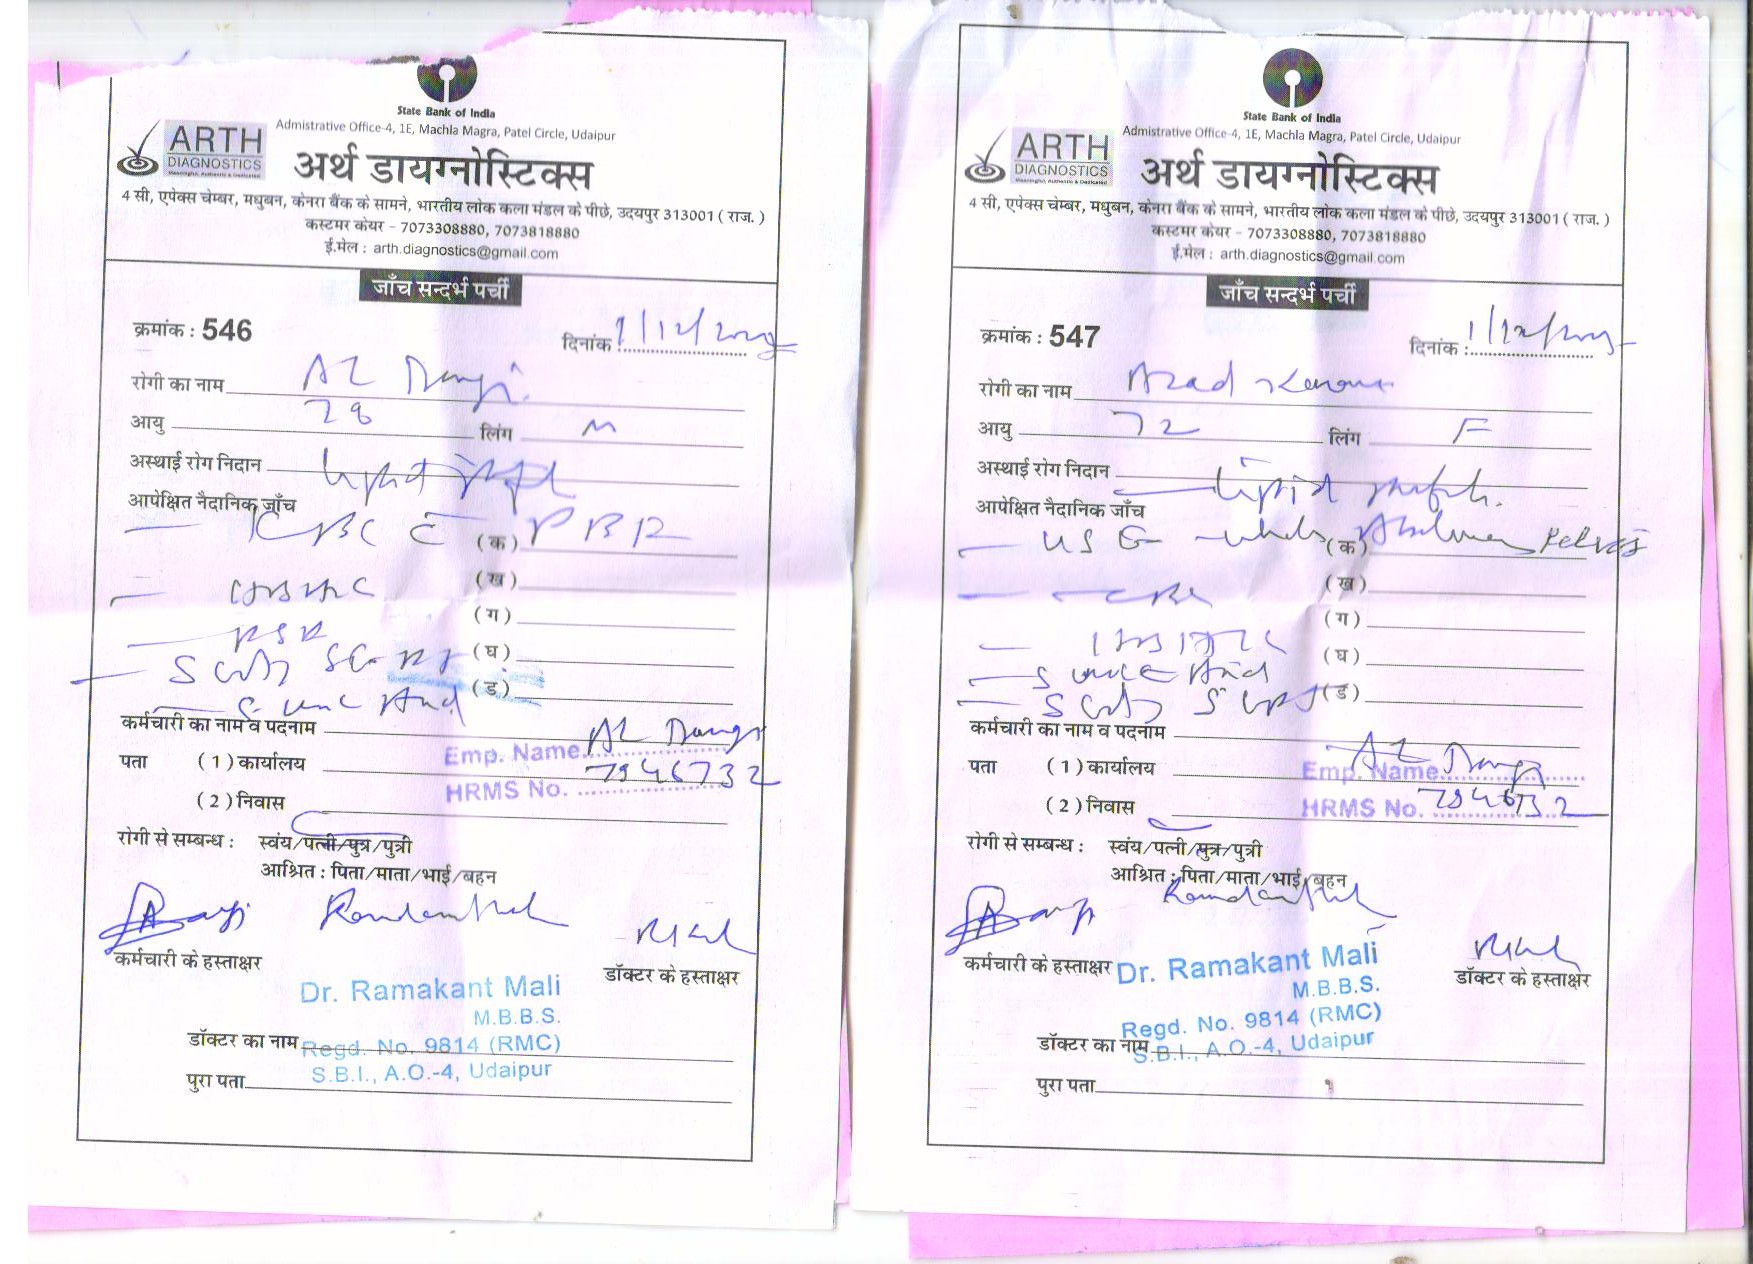 State Bank of India
Admistrative Office-4, 1E, Machla Magra, Patel Circle, Udaipur
ARTH
DIAGNOSTICS
अर्थ डायग्नोस्टिक्स
4 सी, एपेक्स चेम्बर, मधुबन, केनरा बैंक के सामने, भारतीय लोक कला मंडल के पीछे, उदयपुर 313001 ( राज. )
कस्टमर केयर - 7073308880, 7073818880
ई.मेल : arth.diagnostics@gmail.com
जाँच सन्दर्भ पर्ची
क्रमांक : 546
दिनांक :
रोगी का नाम AL Dangi
आयु 28 लिंग M
अस्थाई रोग निदान Lipid
आपेक्षित नैदानिक जाँच
CBC PBR (क)
(ख)
(ग)
(घ)
(ड)
कर्मचारी का नाम व पदनाम AL Dangi
पता (1) कार्यालय Emp. Name
(2) निवास HRMS No. 7946732
रोगी से सम्बन्ध : स्वंय/पत्नी/पुत्र/पुत्री
आश्रित : पिता/माता/भाई/बहन
कर्मचारी के हस्ताक्षर डॉक्टर के हस्ताक्षर
Dr. Ramakant Mali
M.B.B.S.
डॉक्टर का नाम Regd. No. 9814 (RMC)
S.B.I., A.O.-4, Udaipur
पुरा पता
State Bank of India
Admistrative Office-4, 1E, Machla Magra, Patel Circle, Udaipur
ARTH
DIAGNOSTICS
अर्थ डायग्नोस्टिक्स
4 सी, एपेक्स चेम्बर, मधुबन, केनरा बैंक के सामने, भारतीय लोक कला मंडल के पीछे, उदयपुर 313001 ( राज. )
कस्टमर केयर - 7073308880, 7073818880
ई.मेल : arth.diagnostics@gmail.com
जाँच सन्दर्भ पर्ची
क्रमांक : 547
दिनांक :
रोगी का नाम Azad
आयु 72 लिंग F
अस्थाई रोग निदान Lipid
आपेक्षित नैदानिक जाँच
USG whole Abdomen Pelvis (क)
CBC (ख)
(ग)
(घ)
(ड)
कर्मचारी का नाम व पदनाम AL Dangi
पता (1) कार्यालय Emp. Name
(2) निवास HRMS No. 7946732
रोगी से सम्बन्ध : स्वंय/पत्नी/पुत्र/पुत्री
आश्रित : पिता/माता/भाई/बहन
कर्मचारी के हस्ताक्षर डॉक्टर के हस्ताक्षर
Dr. Ramakant Mali
M.B.B.S.
Regd. No. 9814 (RMC)
डॉक्टर का नाम S.B.I., A.O.-4, Udaipur
पुरा पता